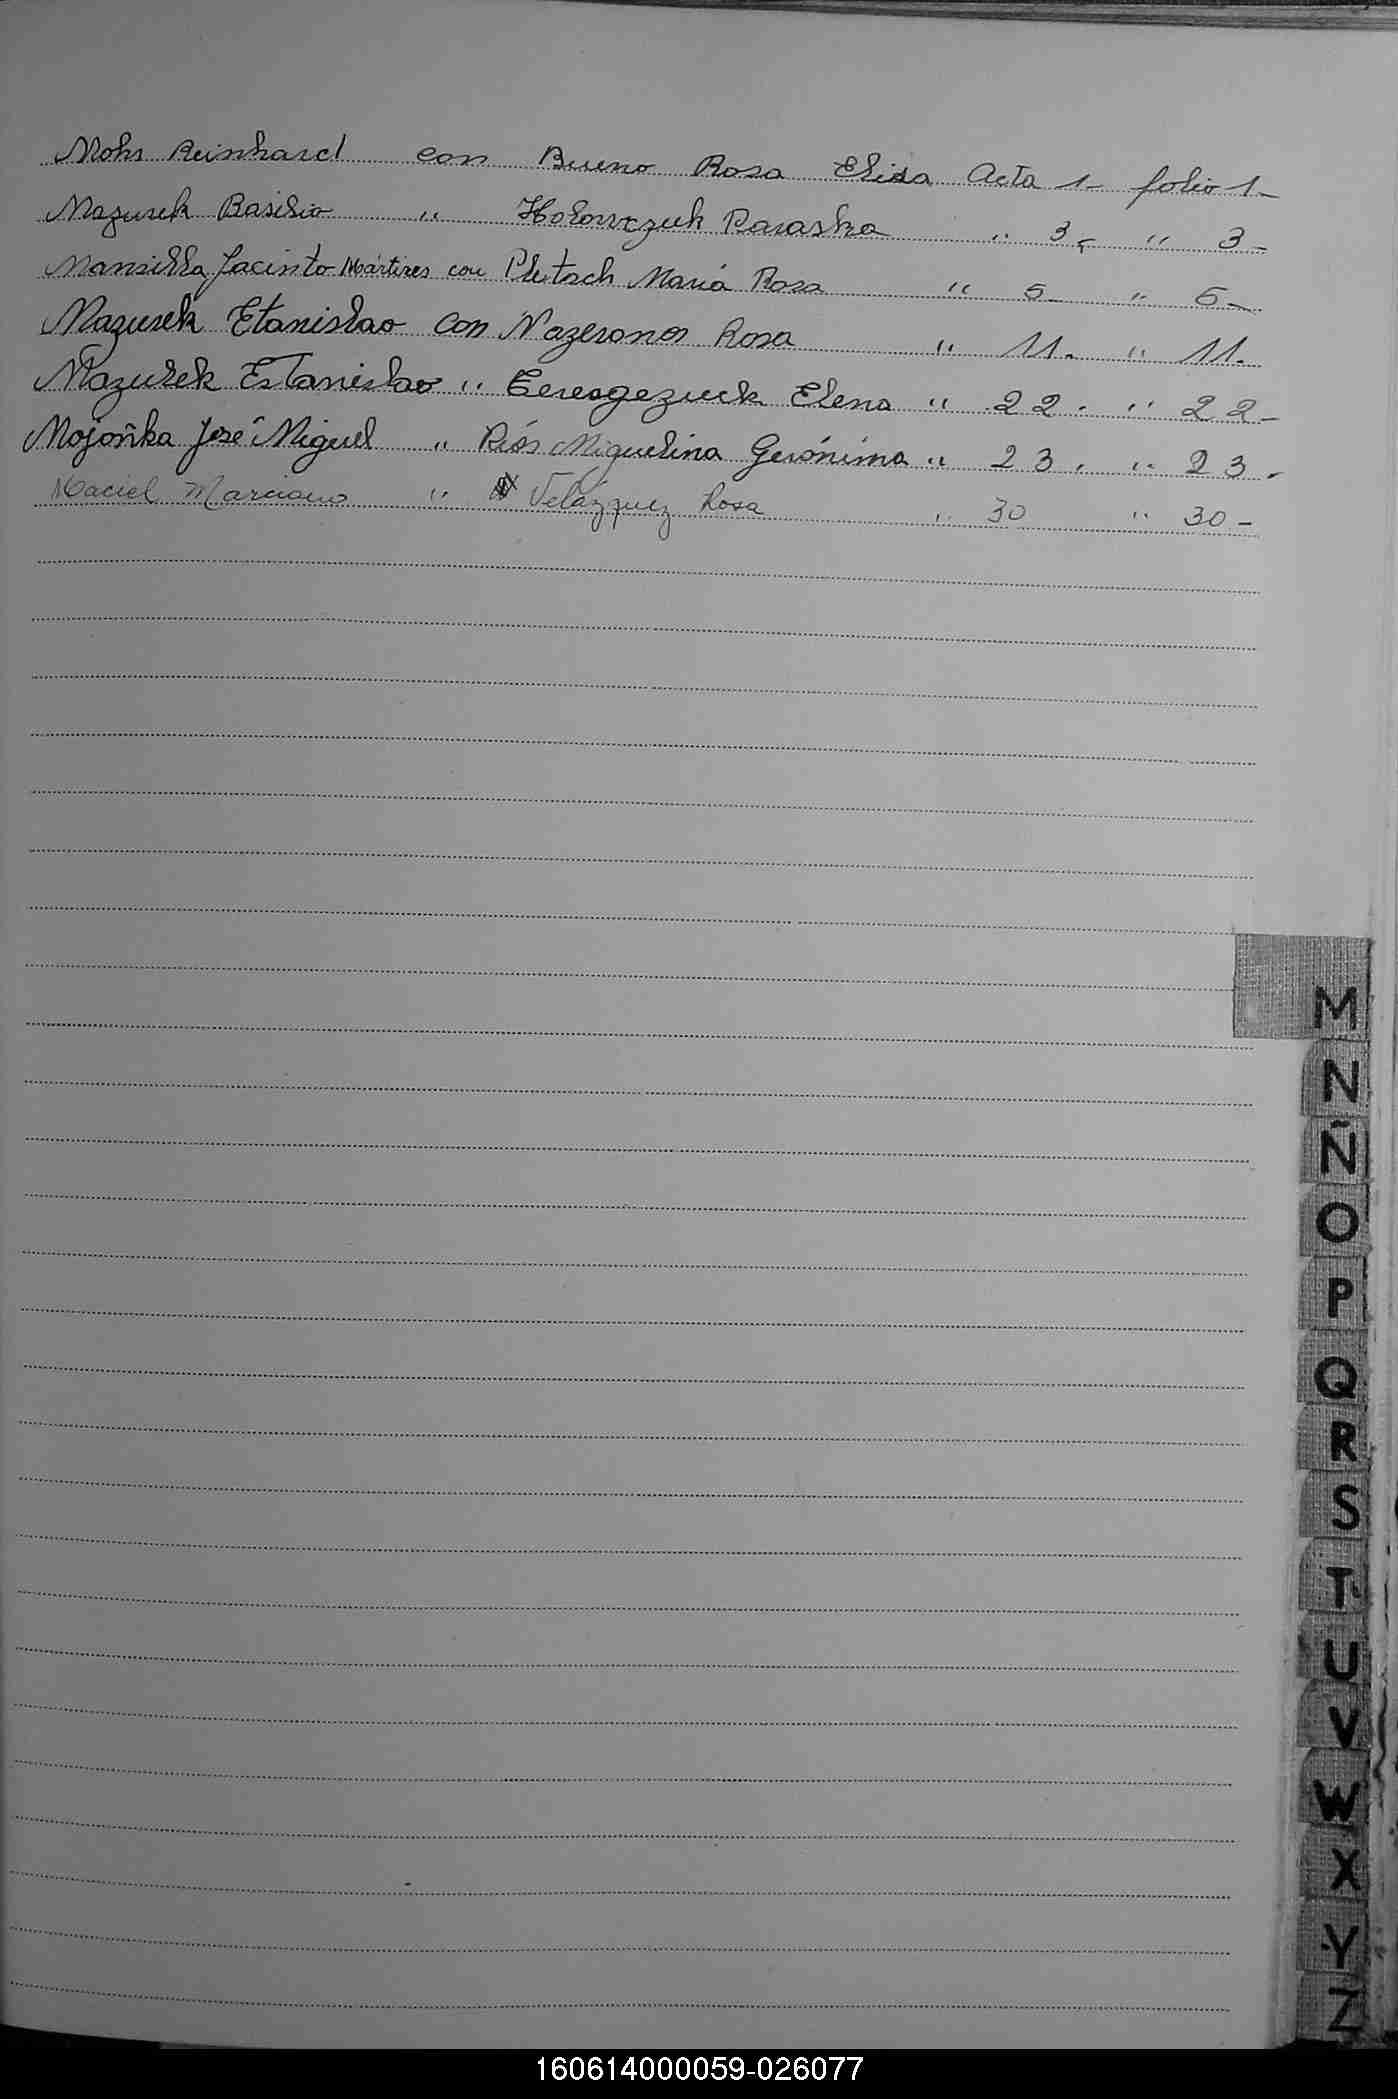 Mohr Reinhard con Bueno Rosa Elida Acta 1- folio 1-
Mazurek Basilio " Holowczuk Paraska " 3- " 3-
Mansilla Jacinto Martires con Pletsch María Rosa " 5- " 5-
Mazurek Etanislao con Nazerono Rosa " 11. " 11.
Mazurek Estanislao " Elena " 22. " 22-
Mojonka José Miguel " Ríos Miguelina Gerónima " 23. " 23-
Maciel Marciano " Velázquez Rosa " 30 " 30-
M
N
Ñ
O
P
Q
R
S
T
U
V
W
X
Y
Z
160614000059-026077